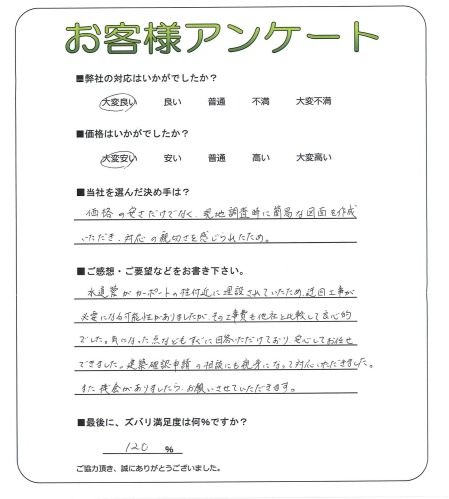 お客様アンケート
■弊社の対応はいかがでしたか？
大変良い 良い 普通 不満 大変不満
■価格はいかがでしたか？
大変安い 安い 普通 高い 大変高い
■当社を選んだ決め手は？
価格の安さだけでなく、現地調査時に簡易な図面を作成
いただき、対応の親切さを感じられたため。
■ご感想・ご要望などをお書き下さい。
水道管がカーポートの柱付近に埋設されていたため、迂回工事が
必要になる可能性がありましたが、その工事費も他社と比較して良心的
でした。気になった点などもすぐに回答いただけており、安心してお任せ
できました。建築確認申請の相談にも親身になって対応いただきました。
また機会がありましたら、お願いさせていただきます。
■最後に、ズバリ満足度は何%ですか？
120 %
ご協力頂き、誠にありがとうございました。